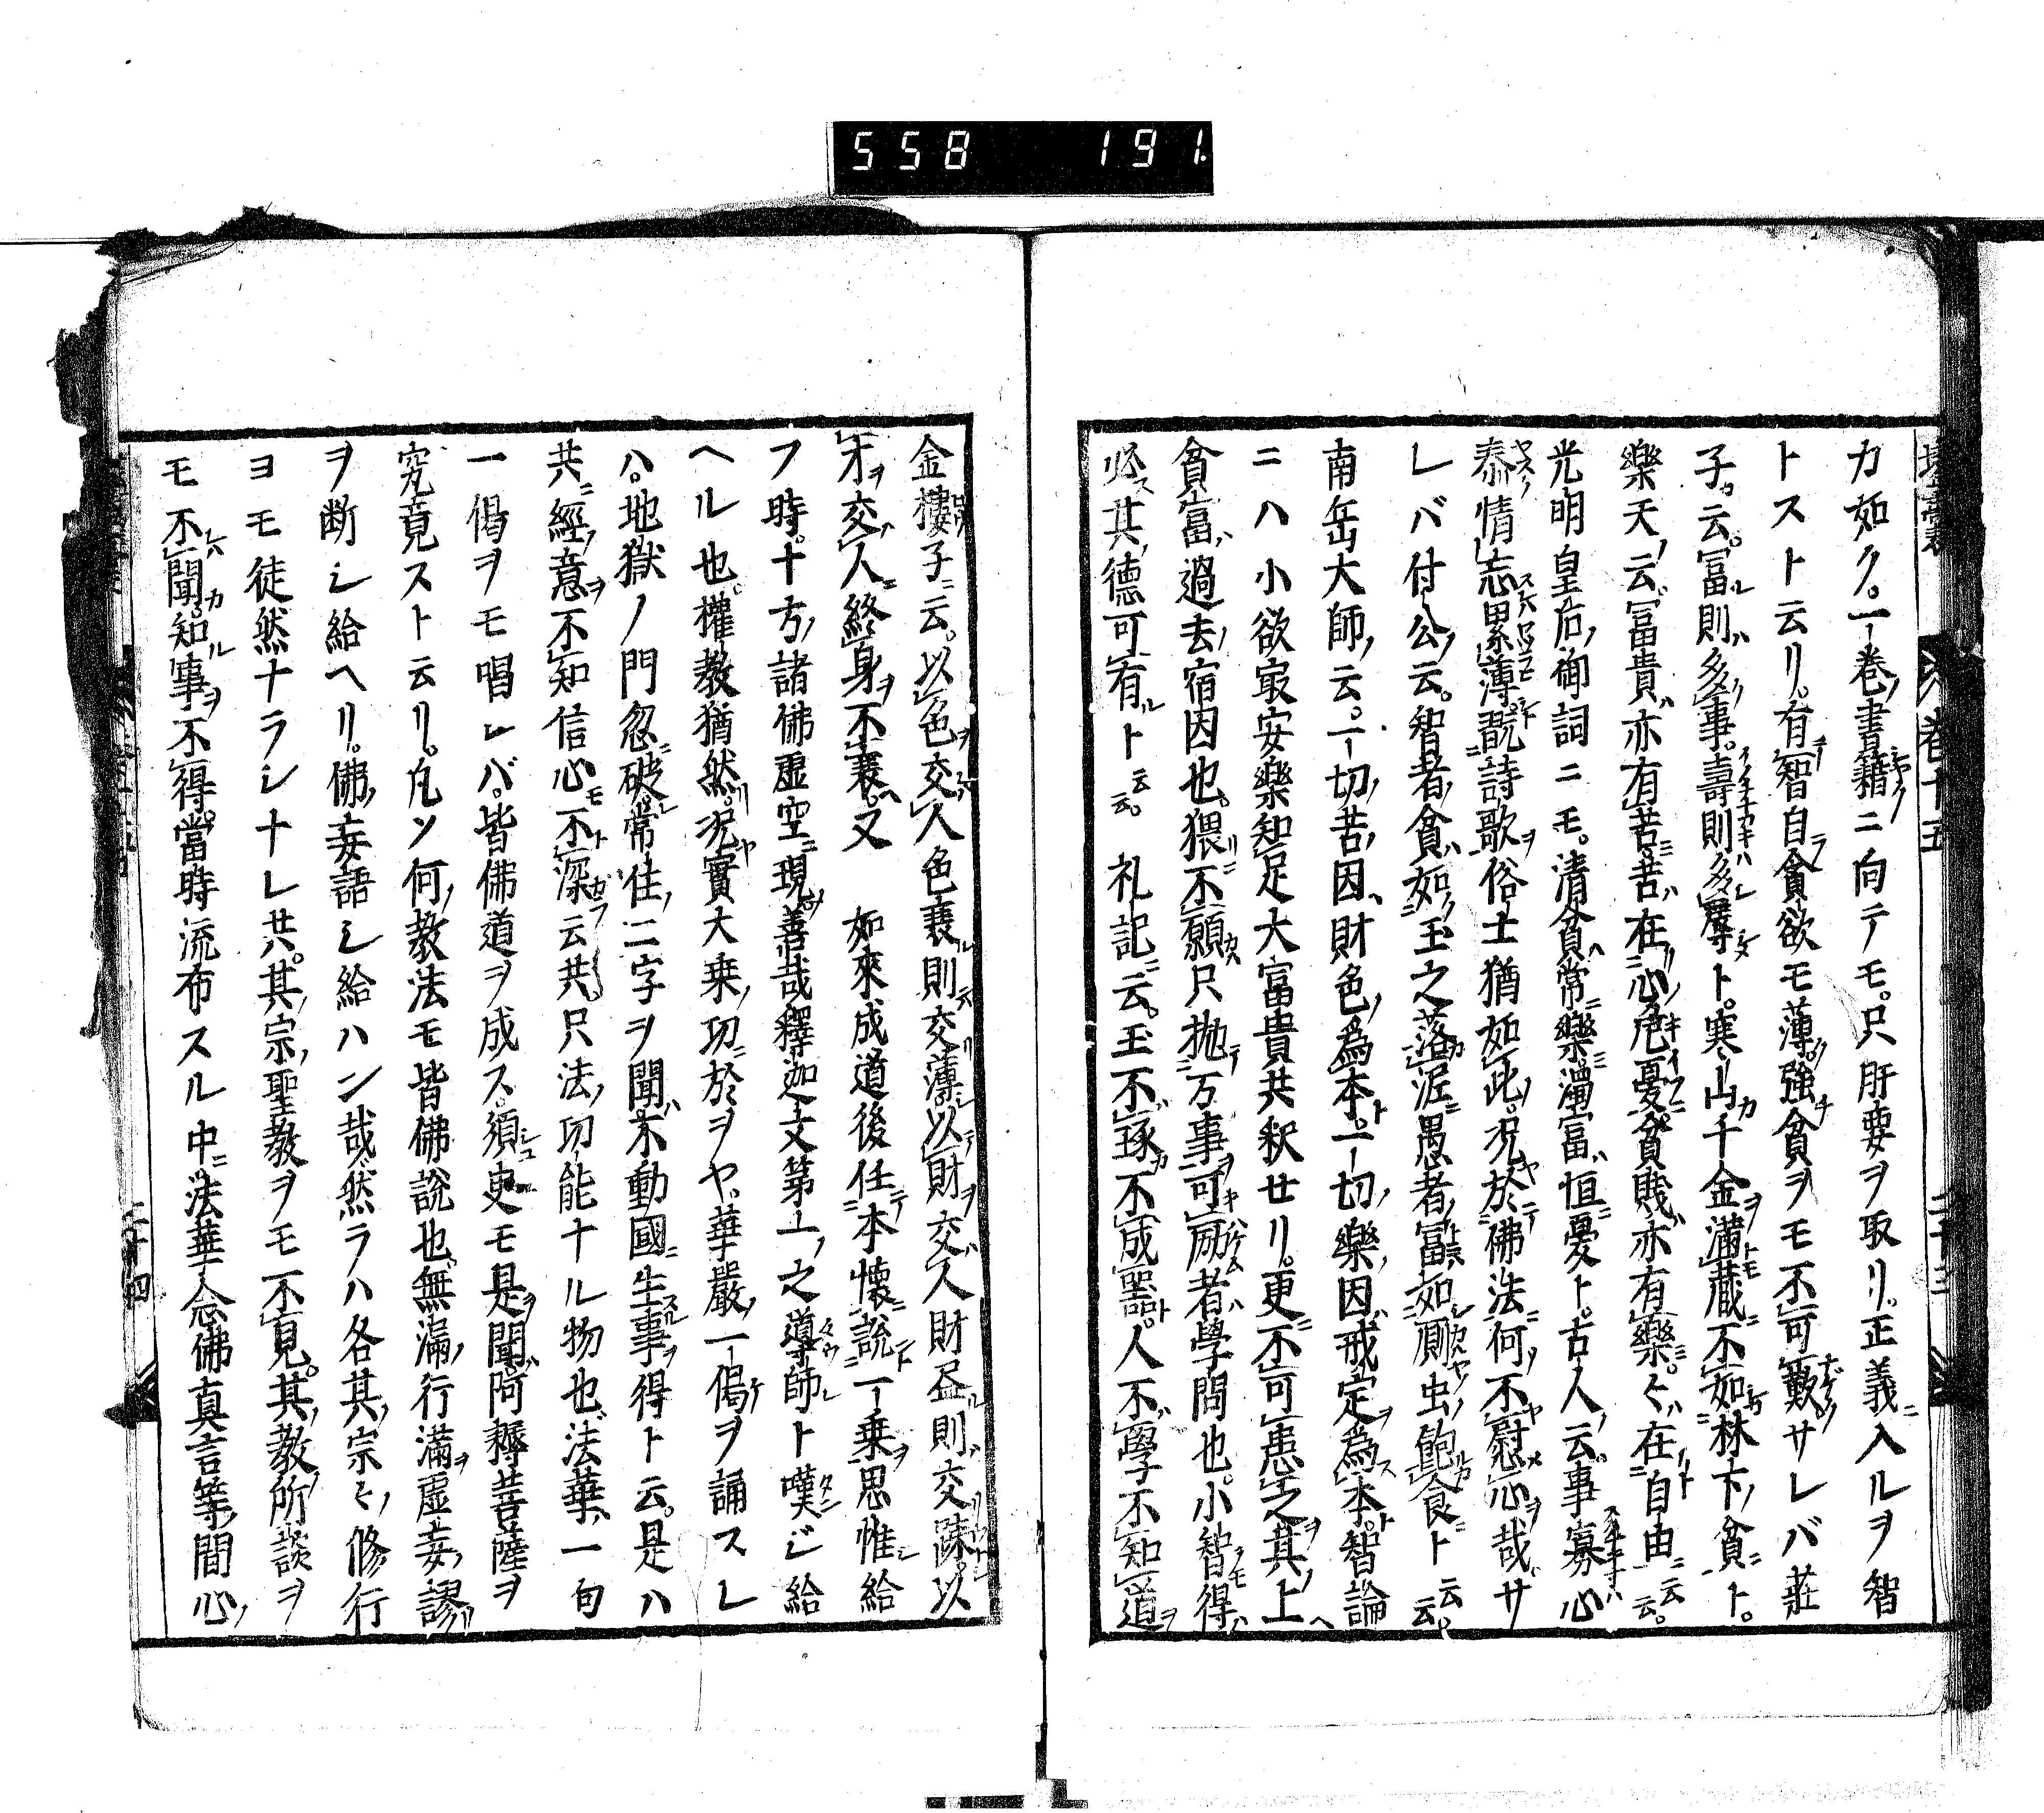 558 191.
巻十五
カ如ク。一巻ノ書籍ニ向テモ。只肝要ヲ取リ。正義ニ入ルヲ智
トスト云リ。有智自貪欲モ薄ク。強チ貧ヲモ不可歎。サレバ莊
子カ云。冨則多事。壽則多辱ト。寒山カ千金満藏不如林下ノ貧ニト。
樂天ノ云。冨貴亦有苦。苦在心危憂。貧賎亦有樂。々在自由ニ云云。
光明皇后ノ御詞ニモ。清貧ハ常ニ樂。濁冨ハ恒ニ憂ト。古人ノ云。事寡心
泰情忘累薄。翫詩歌俗士猶如此。況於佛法何不慰心哉。サ
レバ付公ノ云。智者ノ貧ハ如玉之落泥。愚者ノ冨ハ如厠虫ノ飽食ニト云云。
南岳大師ノ云。一切ノ苦ノ因ハ財色ヲ為本ト。一切ノ樂ノ因ハ戒定ヲ為本ト。智論
ニハ小欲最安樂知足大富貴共釈せリ。更ニ不可患之。其上ヘ
貧富ハ過去ノ宿因也。猥ニ不願。只抛万事可励者ハ學問也。小智ヲモ得ハ
必ス其ノ德可有ルト云云。礼記ニ云。玉不琢不成噐。人不學不知道ヲ
金樓子ニ云。以色交人色衰則交薄。以財交人財盡則交疎。以
才ヲ交人終身不衰。又 如來成道後任本懷説一乗ヲ思惟シ給
フ時。十方ノ諸佛虚空ニ現善哉釋迦文第一之導師ト嘆ジ給
ヘル也。權教猶然リ。況ヤ實大乗ノ功ニ於ヲヤ。華嚴ノ一偈ヲ誦スレ
ハ。地獄ノ門忽ニ破。常住ノ二字ヲ聞ハ。不動國ニ生スル事ヲ得ト云。是ハ
共ニ經ノ意ヲ不知信心モ不深云共。只法ノ功能ナル物也。法華ノ一句
一偈ヲモ唱レバ。皆佛道ヲ成ス。須臾モ是ヲ聞ハ。阿耨菩薩ヲ
究竟スト云リ。凡ソ何ノ教法モ皆佛説也。無漏ノ行満ヲ虚妄ノ謬リ
ヲ断シ給ヘリ。佛ノ妄語シ給ハン哉。然ラハ各其ノ宗々ノ修行
ヨモ徒然ナラシナレ共。其ノ宗ノ聖教ヲモ不見。其ノ教ノ所談ヲ
モ不聞。知ル事ヲ不得。當時流布スル中ニ法華念佛真言等ノ間心ノ